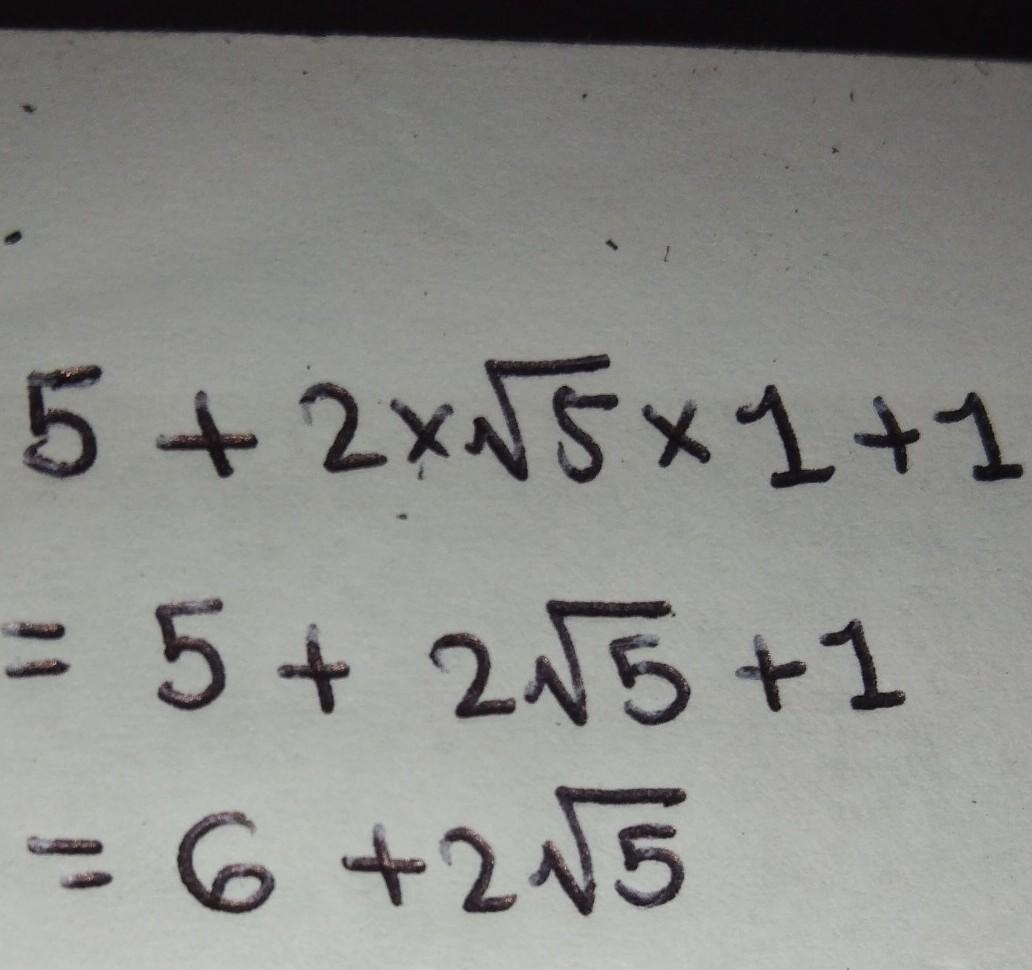 5 + 2×√5 × 1 + 1
= 5 + 2√5 + 1
= 6 + 2√5